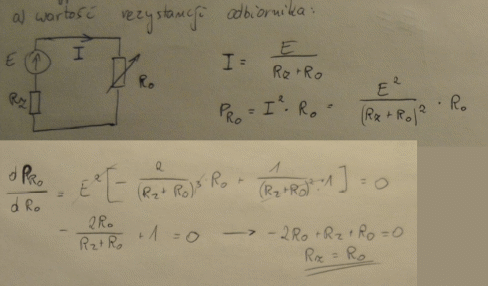 a) wartość rezystancji odbiornika:
E I Rz Ro
I = E / (Rz + Ro)
P_Ro = I² · Ro = E² / (Rz + Ro)² · Ro
dP_Ro / dRo = E² [ - 2 / (Rz + Ro)³ Ro + 1 / (Rz + Ro)² · 1 ] = 0
- 2Ro / (Rz + Ro) + 1 = 0 → - 2Ro + Rz + Ro = 0
Rz = Ro